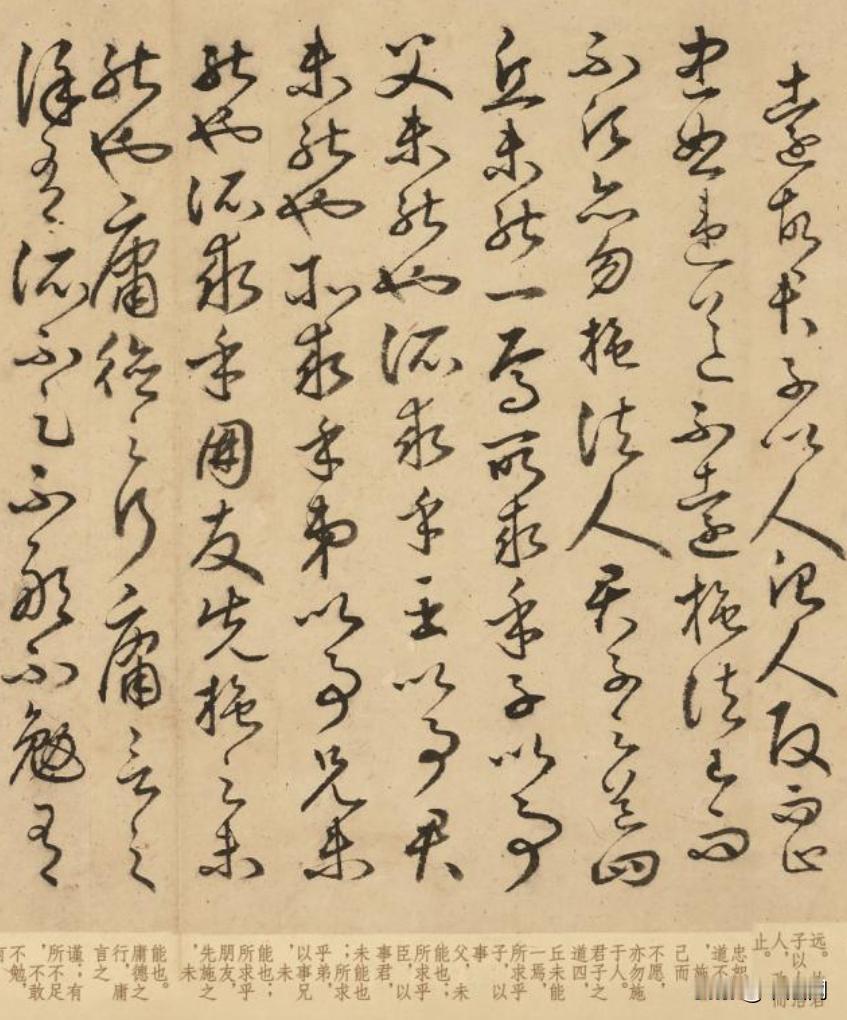 遠故君子以人治人改而止
忠恕違道不遠施諸己而
不願亦勿施諸人君子之道四
丘未能一焉所求乎子以事
父未能也所求乎臣以事君
未能也所求乎弟以事兄未
能也所求乎朋友先施之未
能也庸德之行庸言之
謹有所不足不敢不勉有
远。
子以人
人，
止。
忠恕
道不
，施
己而
不愿，
亦勿施
于人。
君子之
道四，
丘未能
一焉，
所求乎
子，以
事
父，未
能也；
所求乎
臣，以
事君，
未能也
；所求
乎弟，
以事兄
，未
能也；
所求乎
朋友，
先施之
，未
能也。
庸德之
行，庸
言之
谨；有
所不足
，不敢
不勉，
有